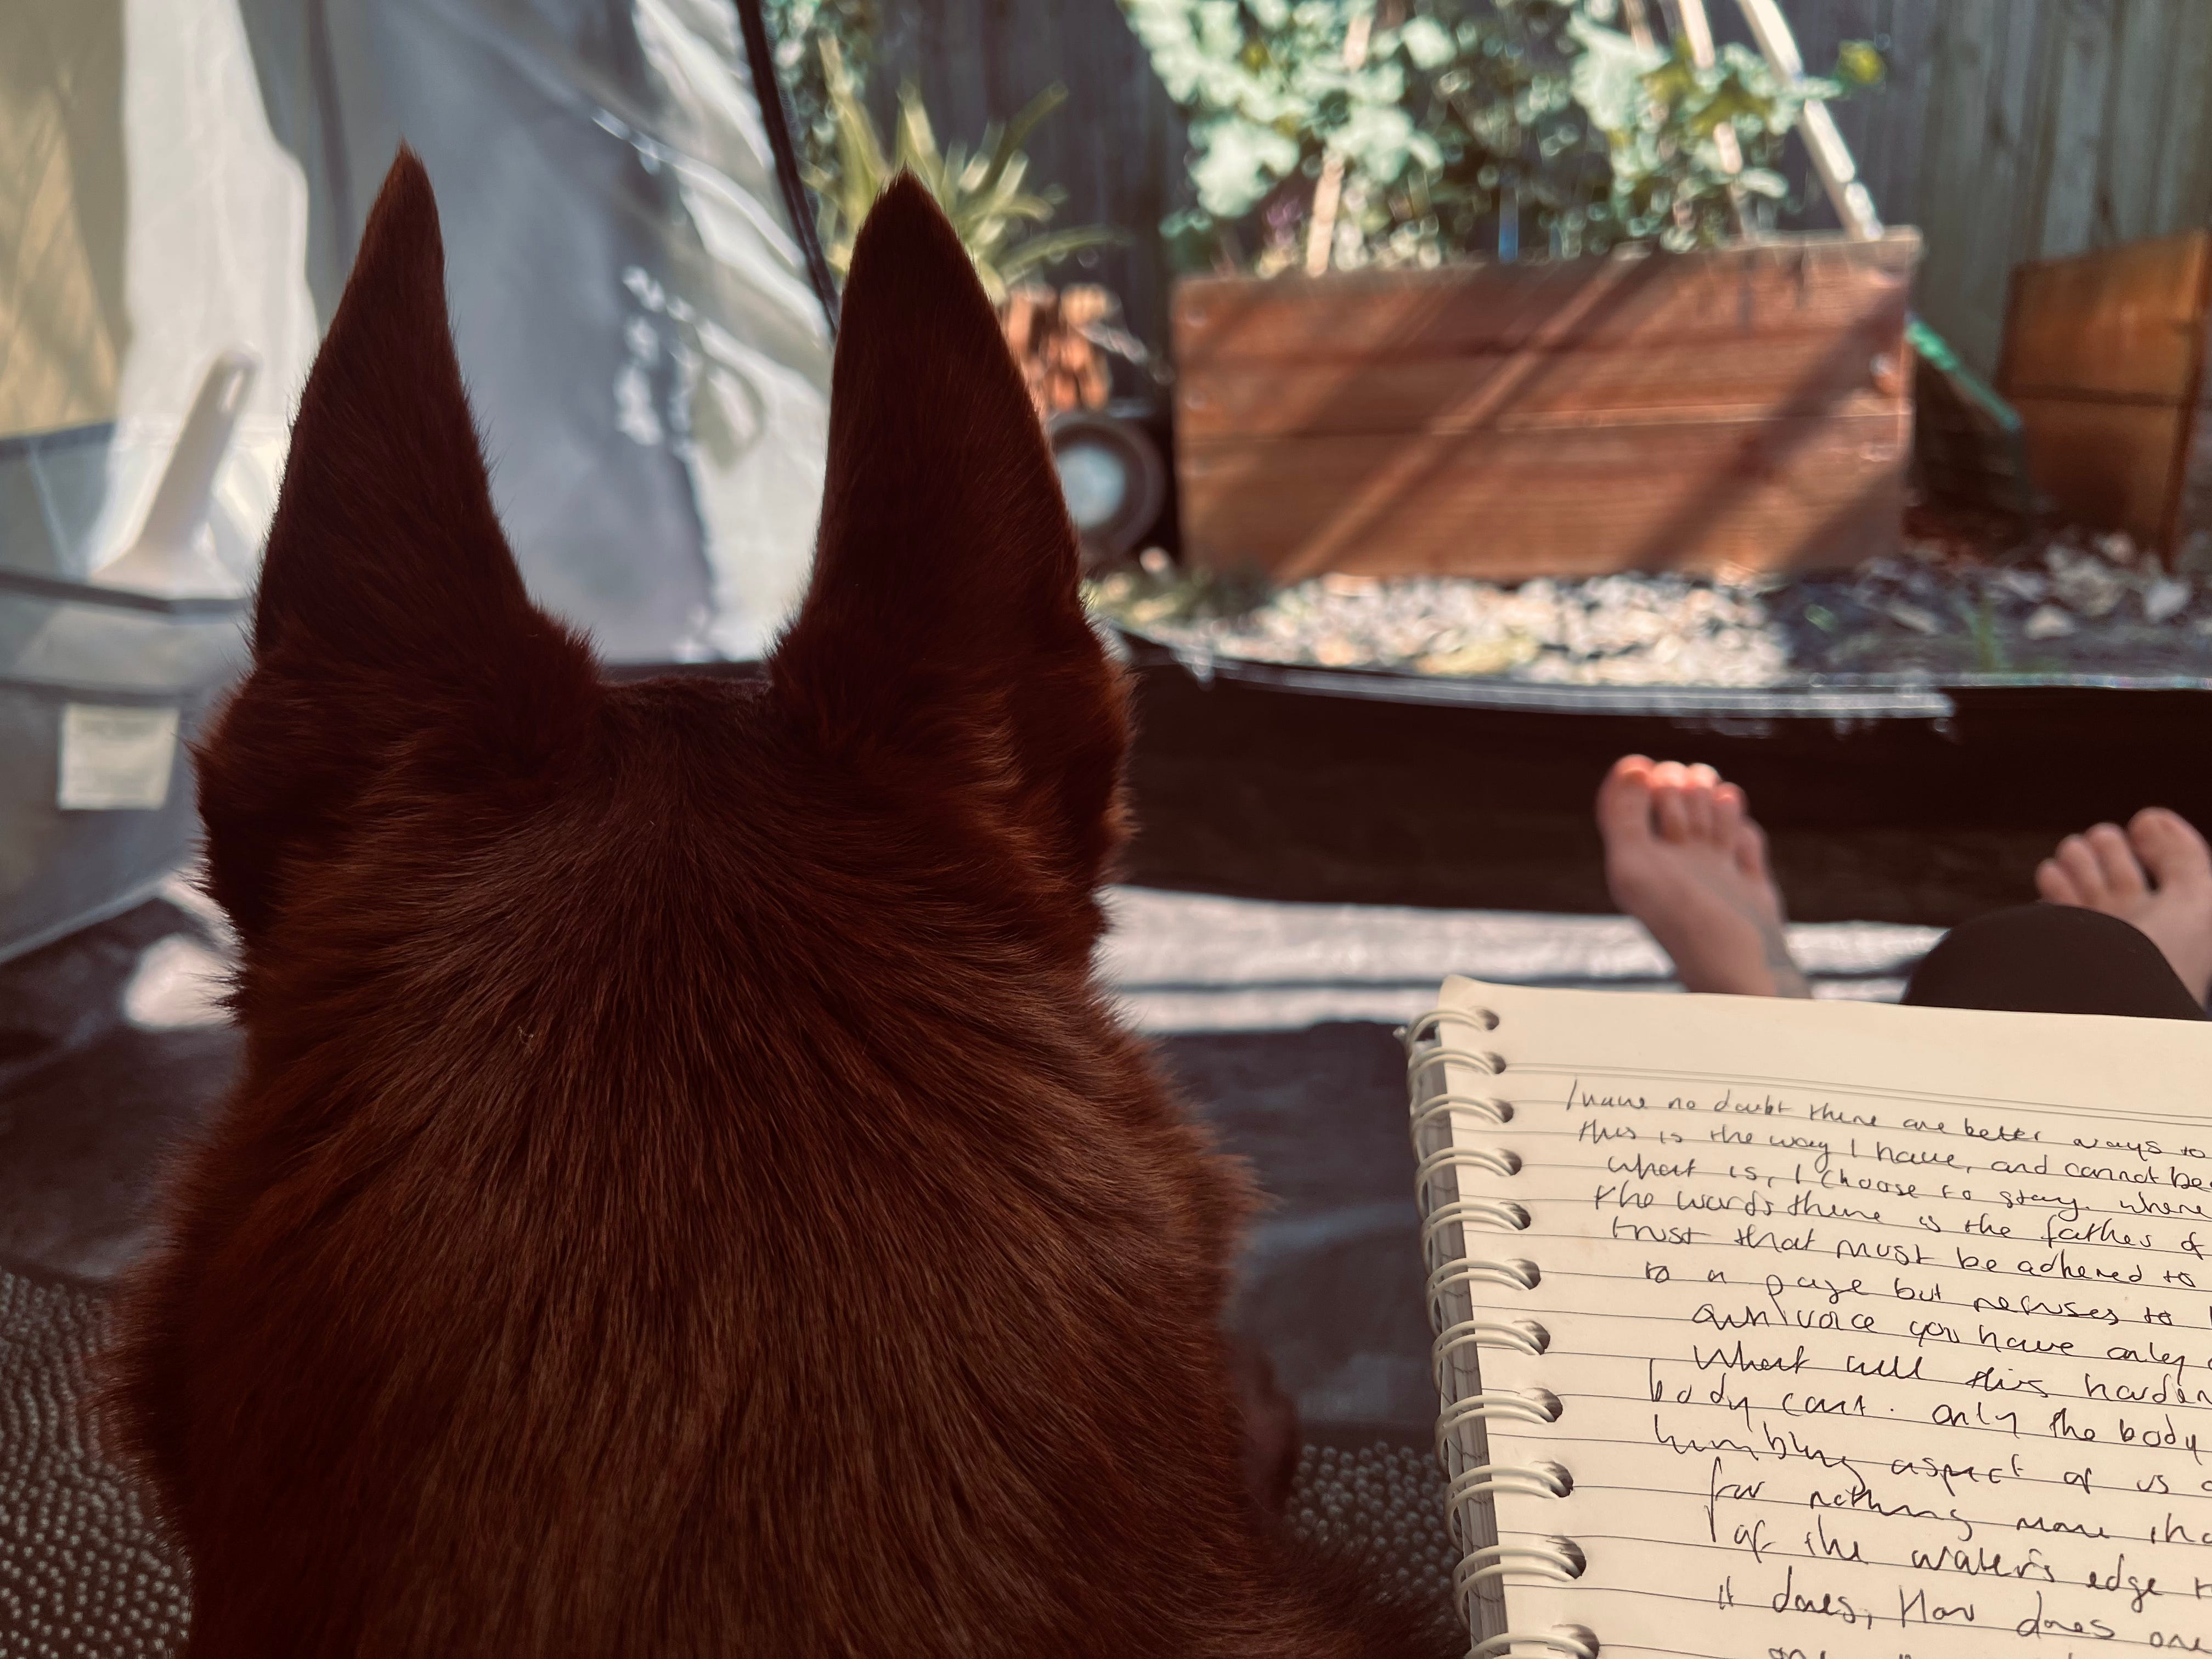 I have no doubt there are better ways to
this is the way I have, and cannot be
what is, I choose to stay. where
the words there is the father of
trust that must be adhered to
to a page but refuses to
you have only
what will this harden
body can't. only the body
humbling aspect of us
for nothing more tha
of the water's edge
it does, How does one